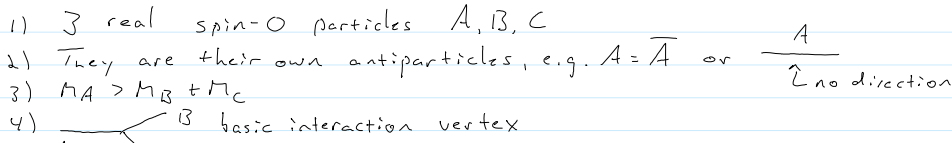 1) 3 real spin-0 particles A, B, C
2) They are their own antiparticles, e.g. A = A̅ or A
↑ no direction
3) M_A > M_B + M_C
4) B basic interaction vertex